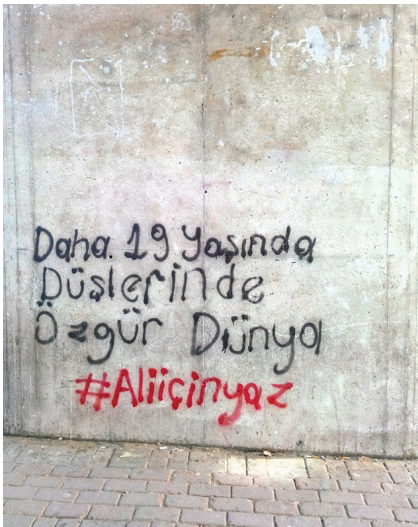 Daha 19 Yaşında
Düşlerinde
Özgür Dünya
#Aliiçinyaz